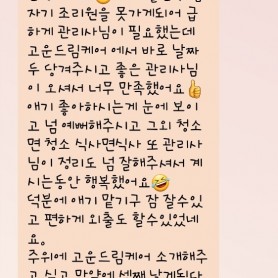 자기 조리원을 못가게되어 급
하게 관리사님이 필요했는데
고운드림케어 에서 바로 날짜
두 당겨주시고 좋은 관리사님
이 오셔서 너무 만족했어요👍
애기 좋아하시는게 눈에 보이
고 넘 예뻐해주시고 그외 청소
면 청소 식사면식사 또 관리사
님이 정리도 넘 잘해주셔서 계
시는동안 행복했어요🤣
덕분에 애기 맡기구 잠 잘수있
고 편하게 외출도 할수있었네
요。
주위에 고운드림케어 소개해주
고 싶고 만약에 셋째 낳게된다